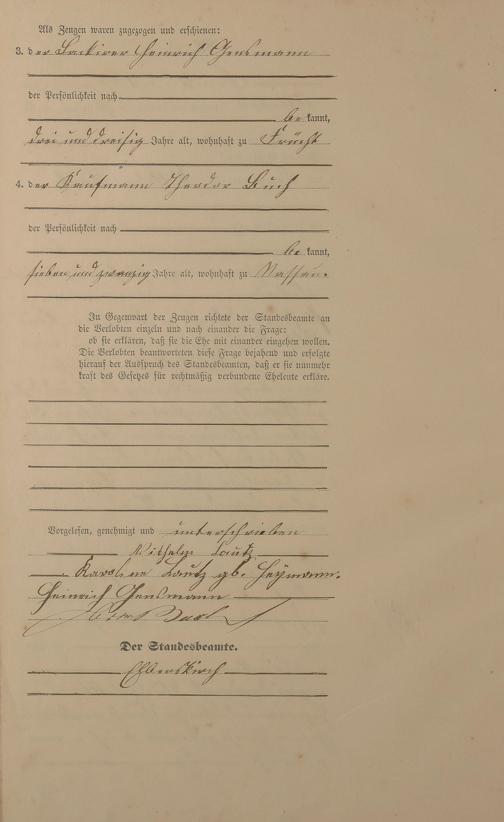 Als Zeugen waren zugezogen und erschienen:
3. der Heinrich Gensmann
der Persönlichkeit nach
bekannt,
drei und dreißig Jahre alt, wohnhaft zu Frücht
4. der Kaufmann Theodor Buch
der Persönlichkeit nach
bekannt,
sieben und zwanzig Jahre alt, wohnhaft zu Nassau.
In Gegenwart der Zeugen richtete der Standesbeamte an
die Verlobten einzeln und nach einander die Frage:
ob sie erklären, daß sie die Ehe mit einander eingehen wollen.
Die Verlobten beantworteten diese Frage bejahend und erfolgte
hierauf der Ausspruch des Standesbeamten, daß er sie nunmehr
kraft des Gesetzes für rechtmäßig verbundene Eheleute erkläre.
Vorgelesen, genehmigt und unterschrieben
Wilhelm Lautz
Karoline Lautz gb. Heymann.
Heinrich Gensmann
Der Standesbeamte.